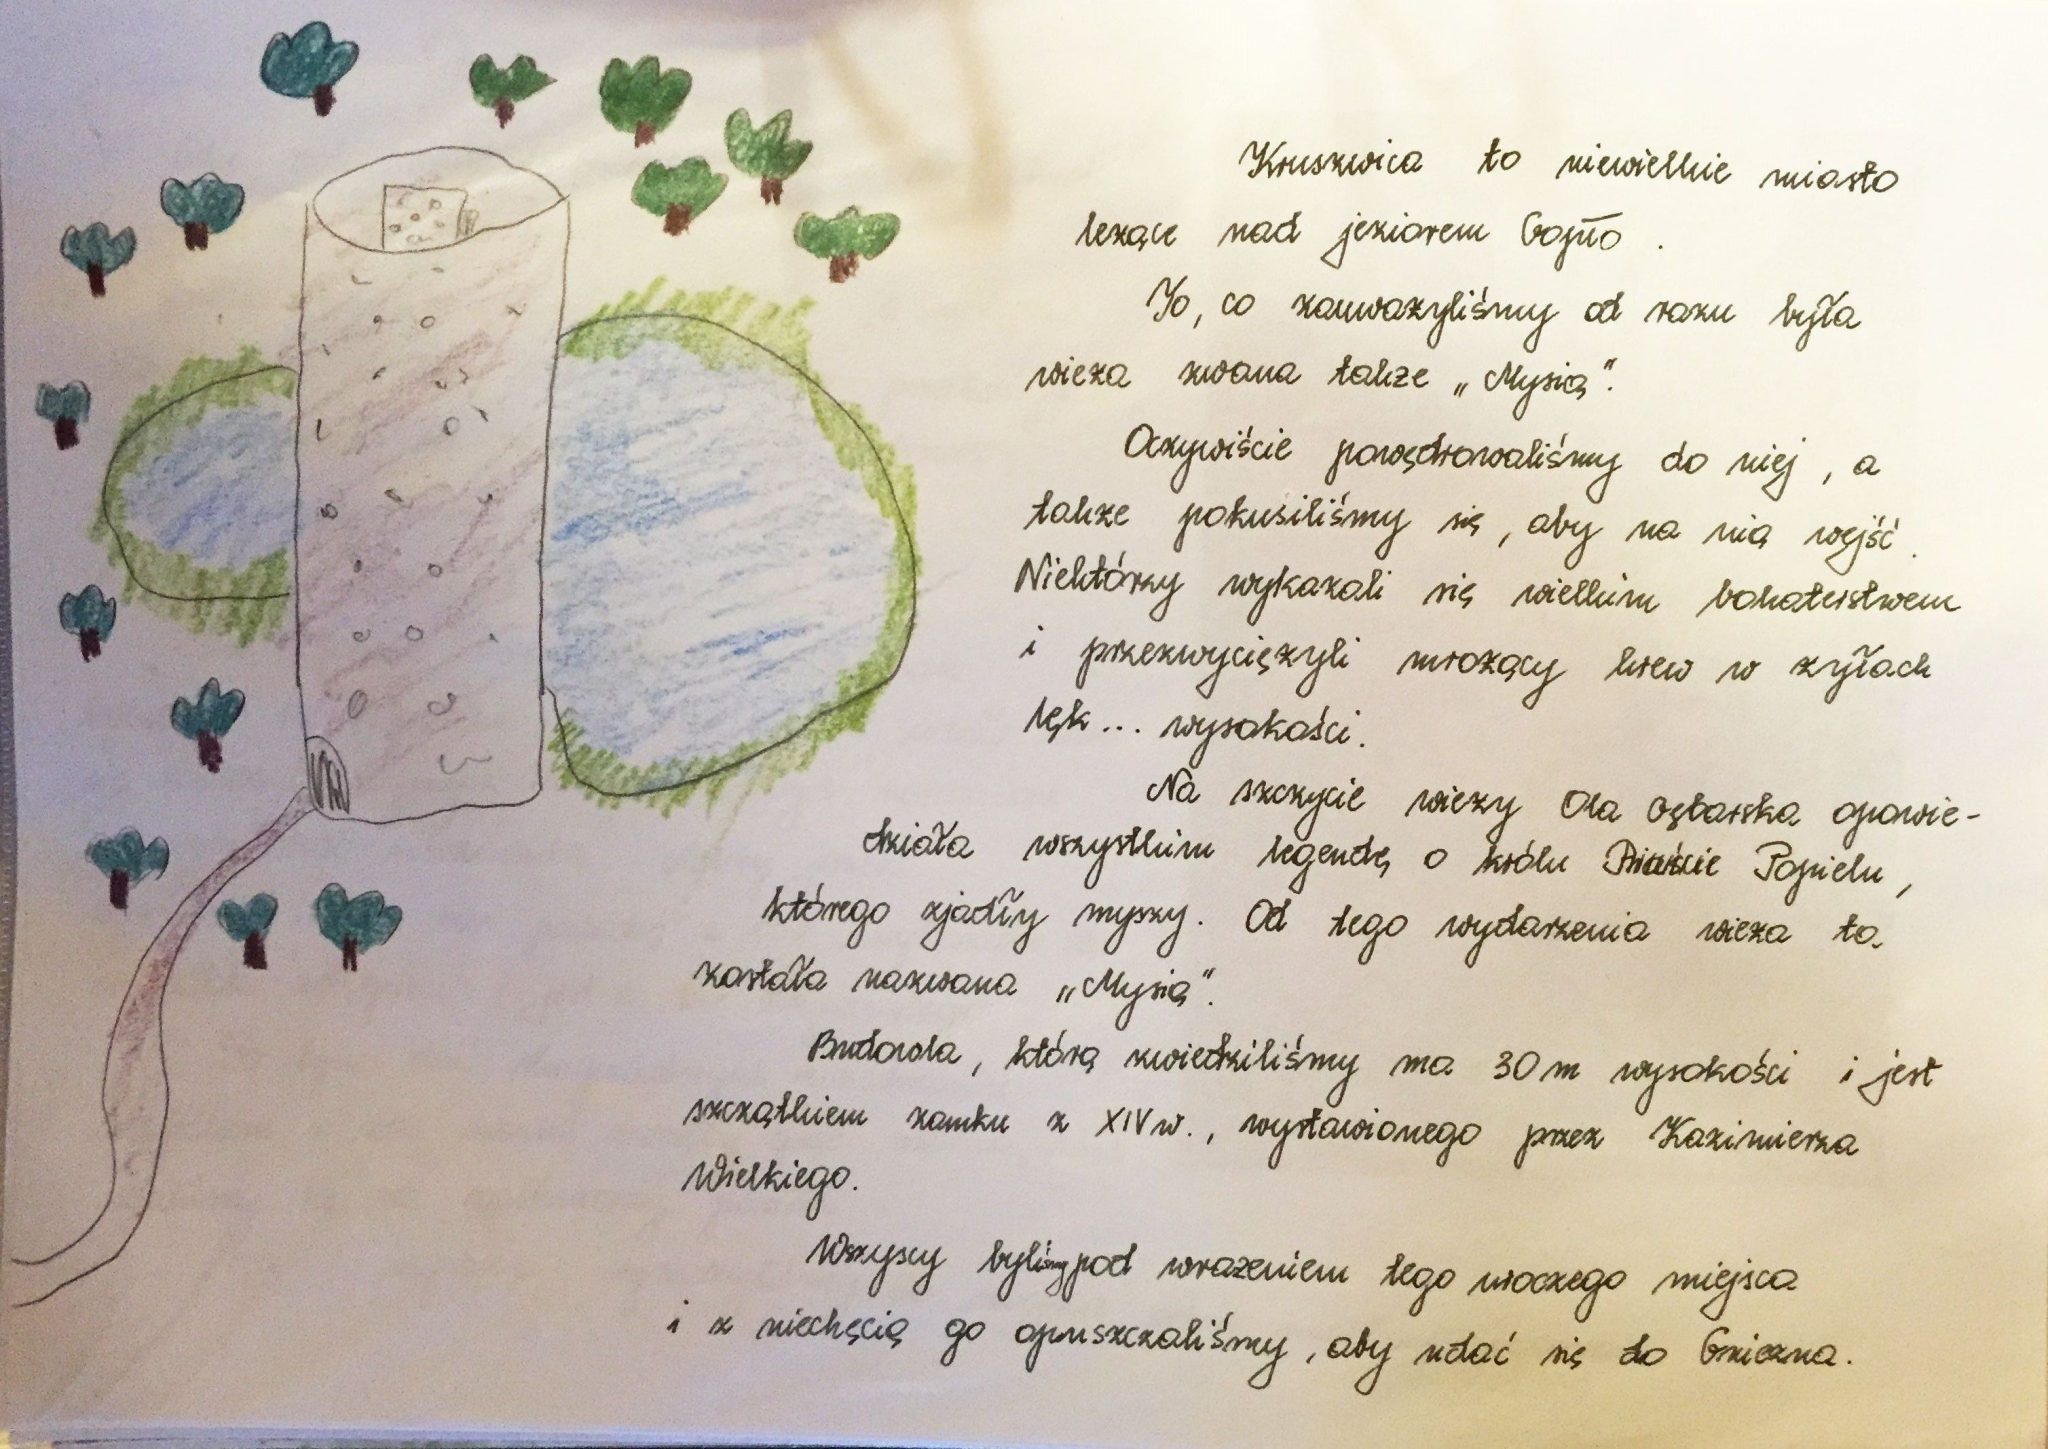 Kruszwica to niewielkie miasto
leżące nad jeziorem Gopło.
To, co zauważyliśmy od razu była
wieża zwana także „Mysią".
Oczywiście powędrowaliśmy do niej, a
także pokusiliśmy się, aby na nią wejść.
Niektórzy wykazali się wielkim bohaterstwem
i przezwyciężyli mrożący krew w żyłach
lęk... wysokości.
Na szczycie wieży Ola Gębarska opowie-
działa wszystkim legendę o królu Popielu,
którego zjadły myszy. Od tego wydarzenia wieża ta
została nazwana „Mysią".
Budowla, którą zwiedziliśmy ma 30 m wysokości i jest
szczątkiem zamku z XIV w., wystawionego przez Kazimierza
Wielkiego.
Wszyscy byliśmy pod wrażeniem tego uroczego miejsca
i z niechęcią go opuszczaliśmy, aby udać się do Gniezna.